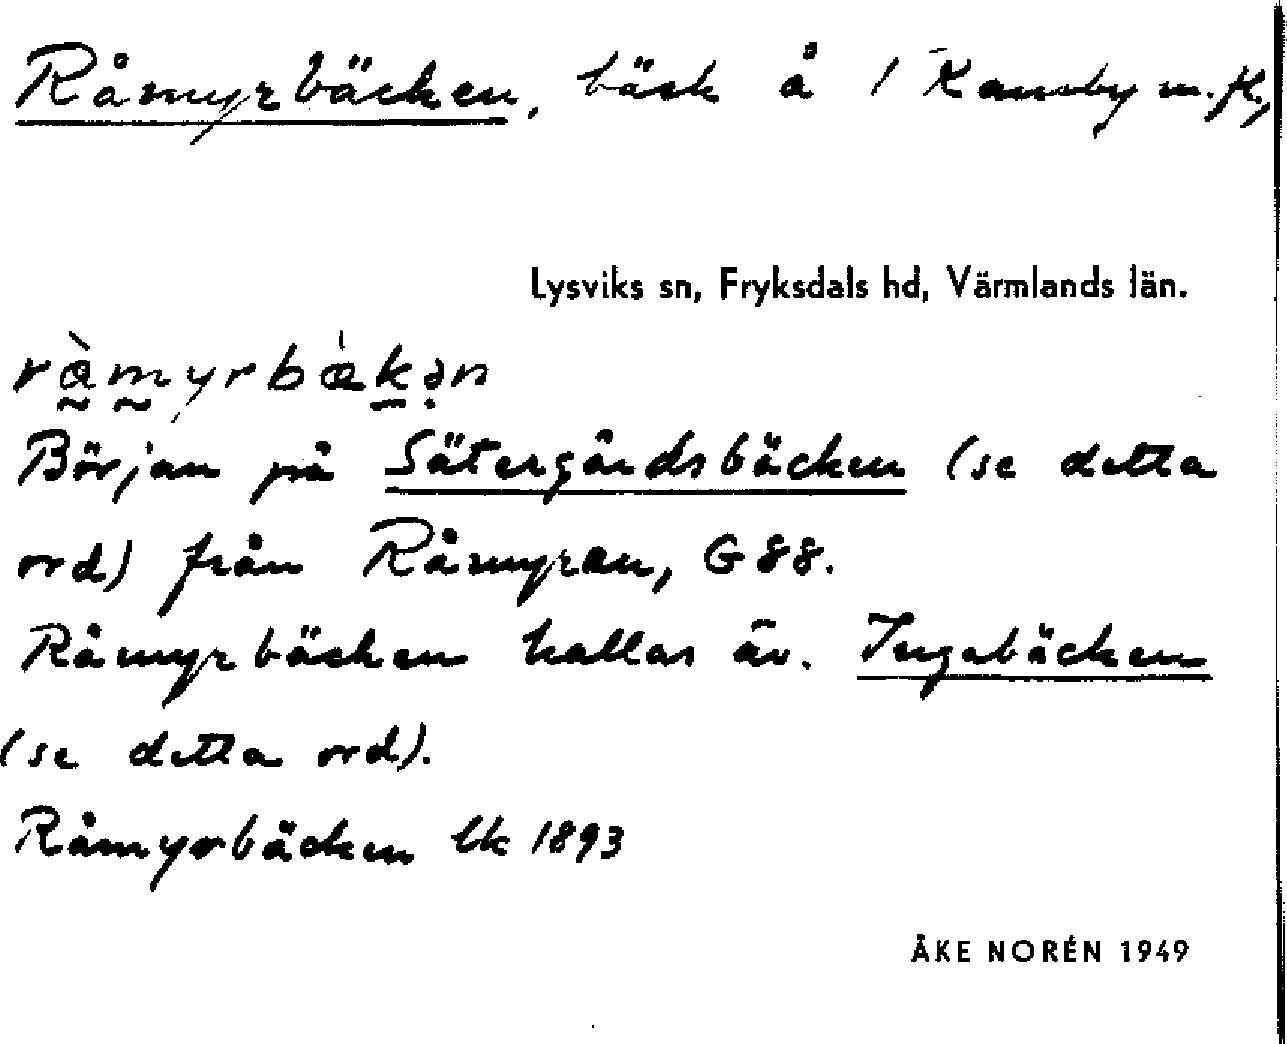 Råmyrbäcken, bäck å 1 Kansby m.fl.,
Lysviks sn, Fryksdals hd, Värmlands län.
Början på Sätergårdsbäcken (se detta
ord) från Råmyran, G 88.
Råmyrbäcken kallas äv. Ingebäcken
(se detta ord).
Råmyrbäcken Ek 1893
ÅKE NORÉN 1949